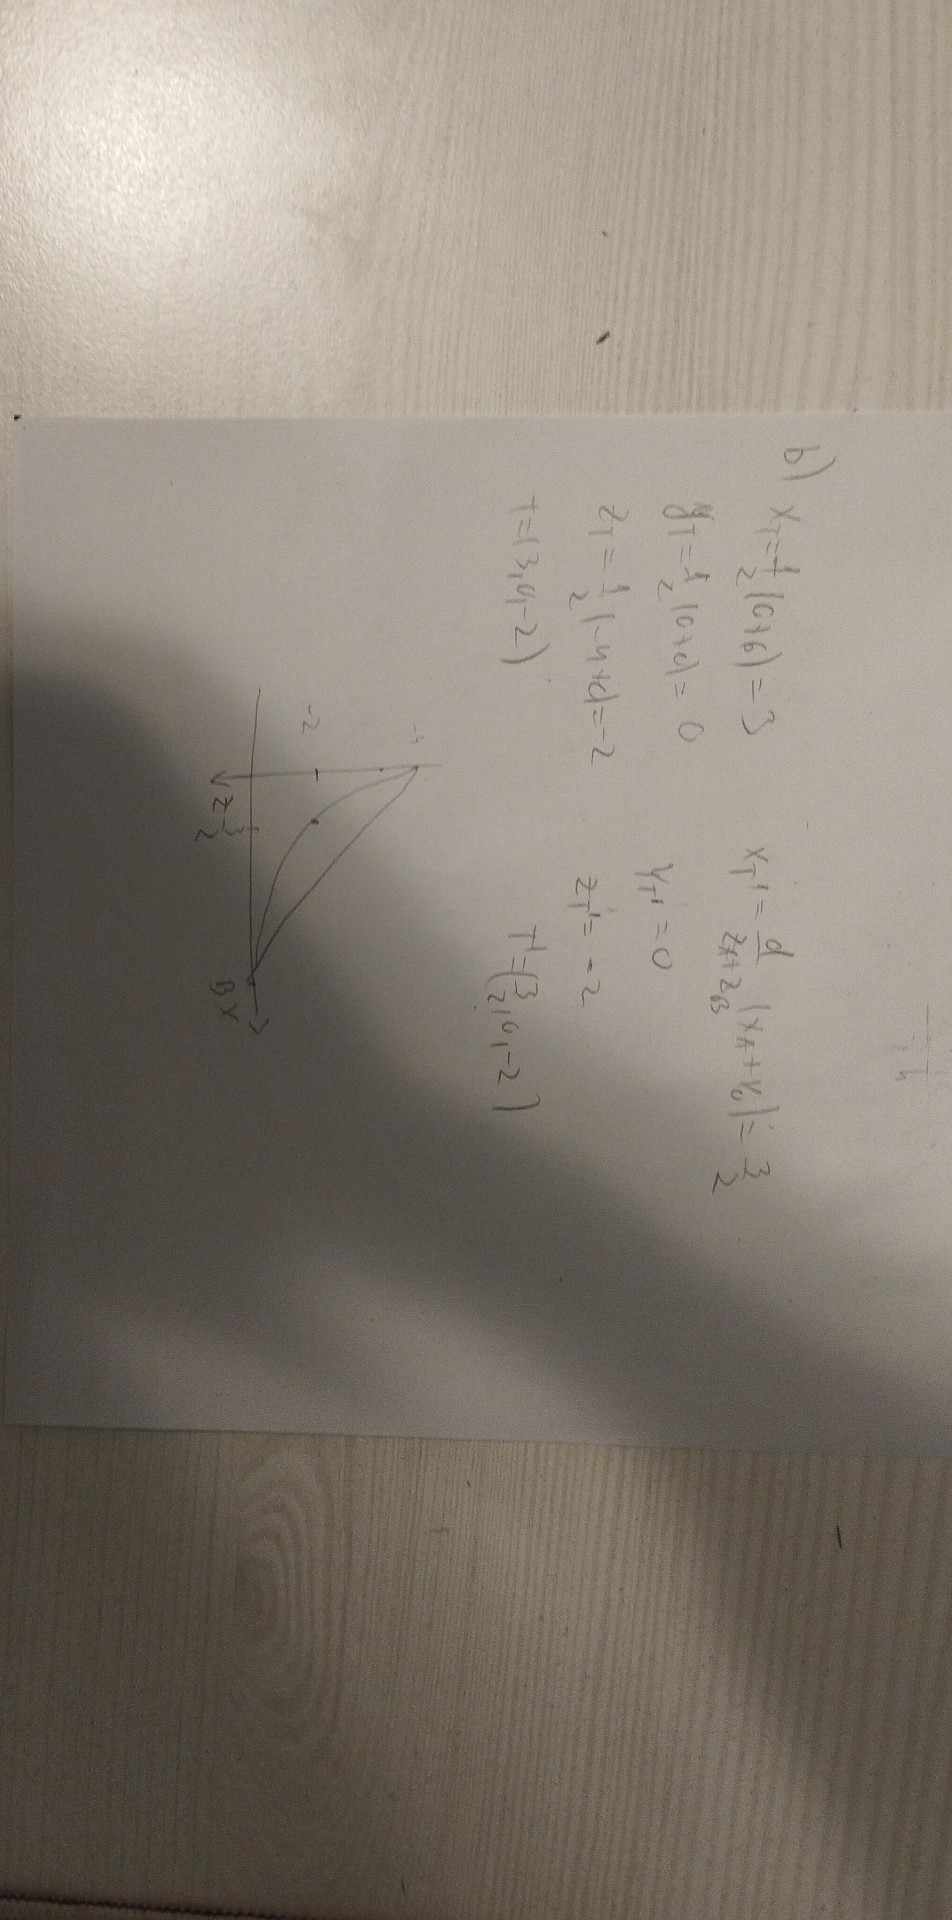 b)
x_T = 1/2 (0+6) = 3
y_T = 1/2 (0+0) = 0
z_T = 1/2 (-4+0) = -2
T = (3,0,-2)
x_T' = d/(z_A+z_B) (x_A+x_B) = 3/2
y_T' = 0
z_T' = -2
T' = (3/2,0,-2)
-4
-2
z 3/2 B x